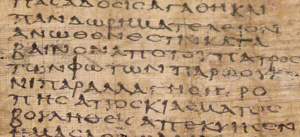 ΠΑCΑΔΟCΙCΑΓΑΘΗΚΑΙ
ΠΑΝΔΩΡΗΜΑΤΕΛΕΙΟΝ
ΑΝΩΘΕΝΕCΤΙΝΚΑΤΑ
ΒΑΙΝΟΝΑΠΟΤΟΥΠΑΤΡΟC
ΤΩΝΦΩΤΩΝΠΑΡΩΟΥΚ
ΝΙΠΑΡΑΛΛΑΓΗCΗΡΟ
ΠΗCΑΠΟCΚΙΑCΜΑΤΟC
ΒΟΥΛΗΘΕΙCΑΠΕΚΥΗCΕΝ